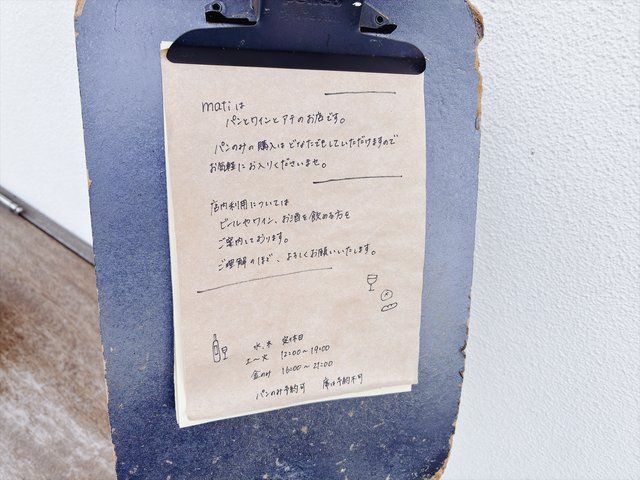 mati は
パンとワインとアテのお店です。
パンのみの購入はどなたでもしていただけますので
お気軽にお入りくださいませ。
店内利用については
ビールやワイン、お酒を飲める方を
ご案内しております。
ご理解のほど、よろしくお願いいたします。
水、木 定休日
土〜火 12:00〜19:00
金のみ 16:00〜21:00
パンのみ予約可 席は予約不可